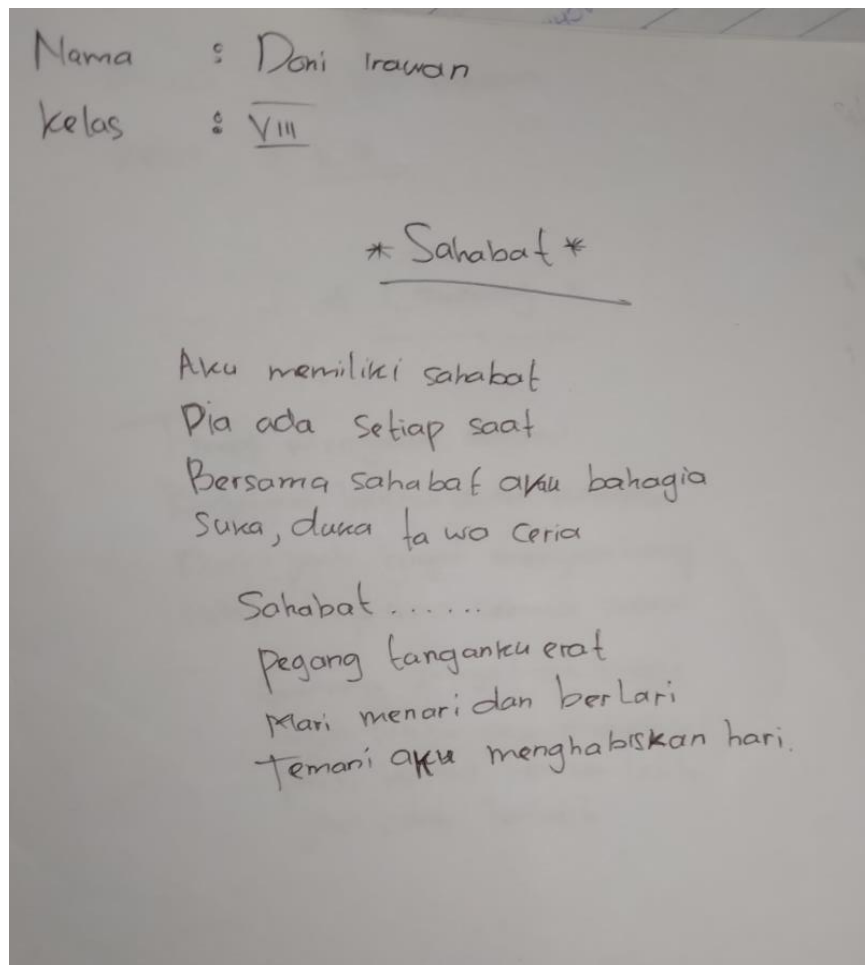 Nama : Doni Irawan
Kelas : VIII
* Sahabat *
Aku memiliki sahabat
Dia ada setiap saat
Bersama sahabat aku bahagia
Suka, duka ta wa ceria
Sahabat ......
Pegang tanganku erat
Mari menari dan berlari
Temani aku menghabiskan hari.